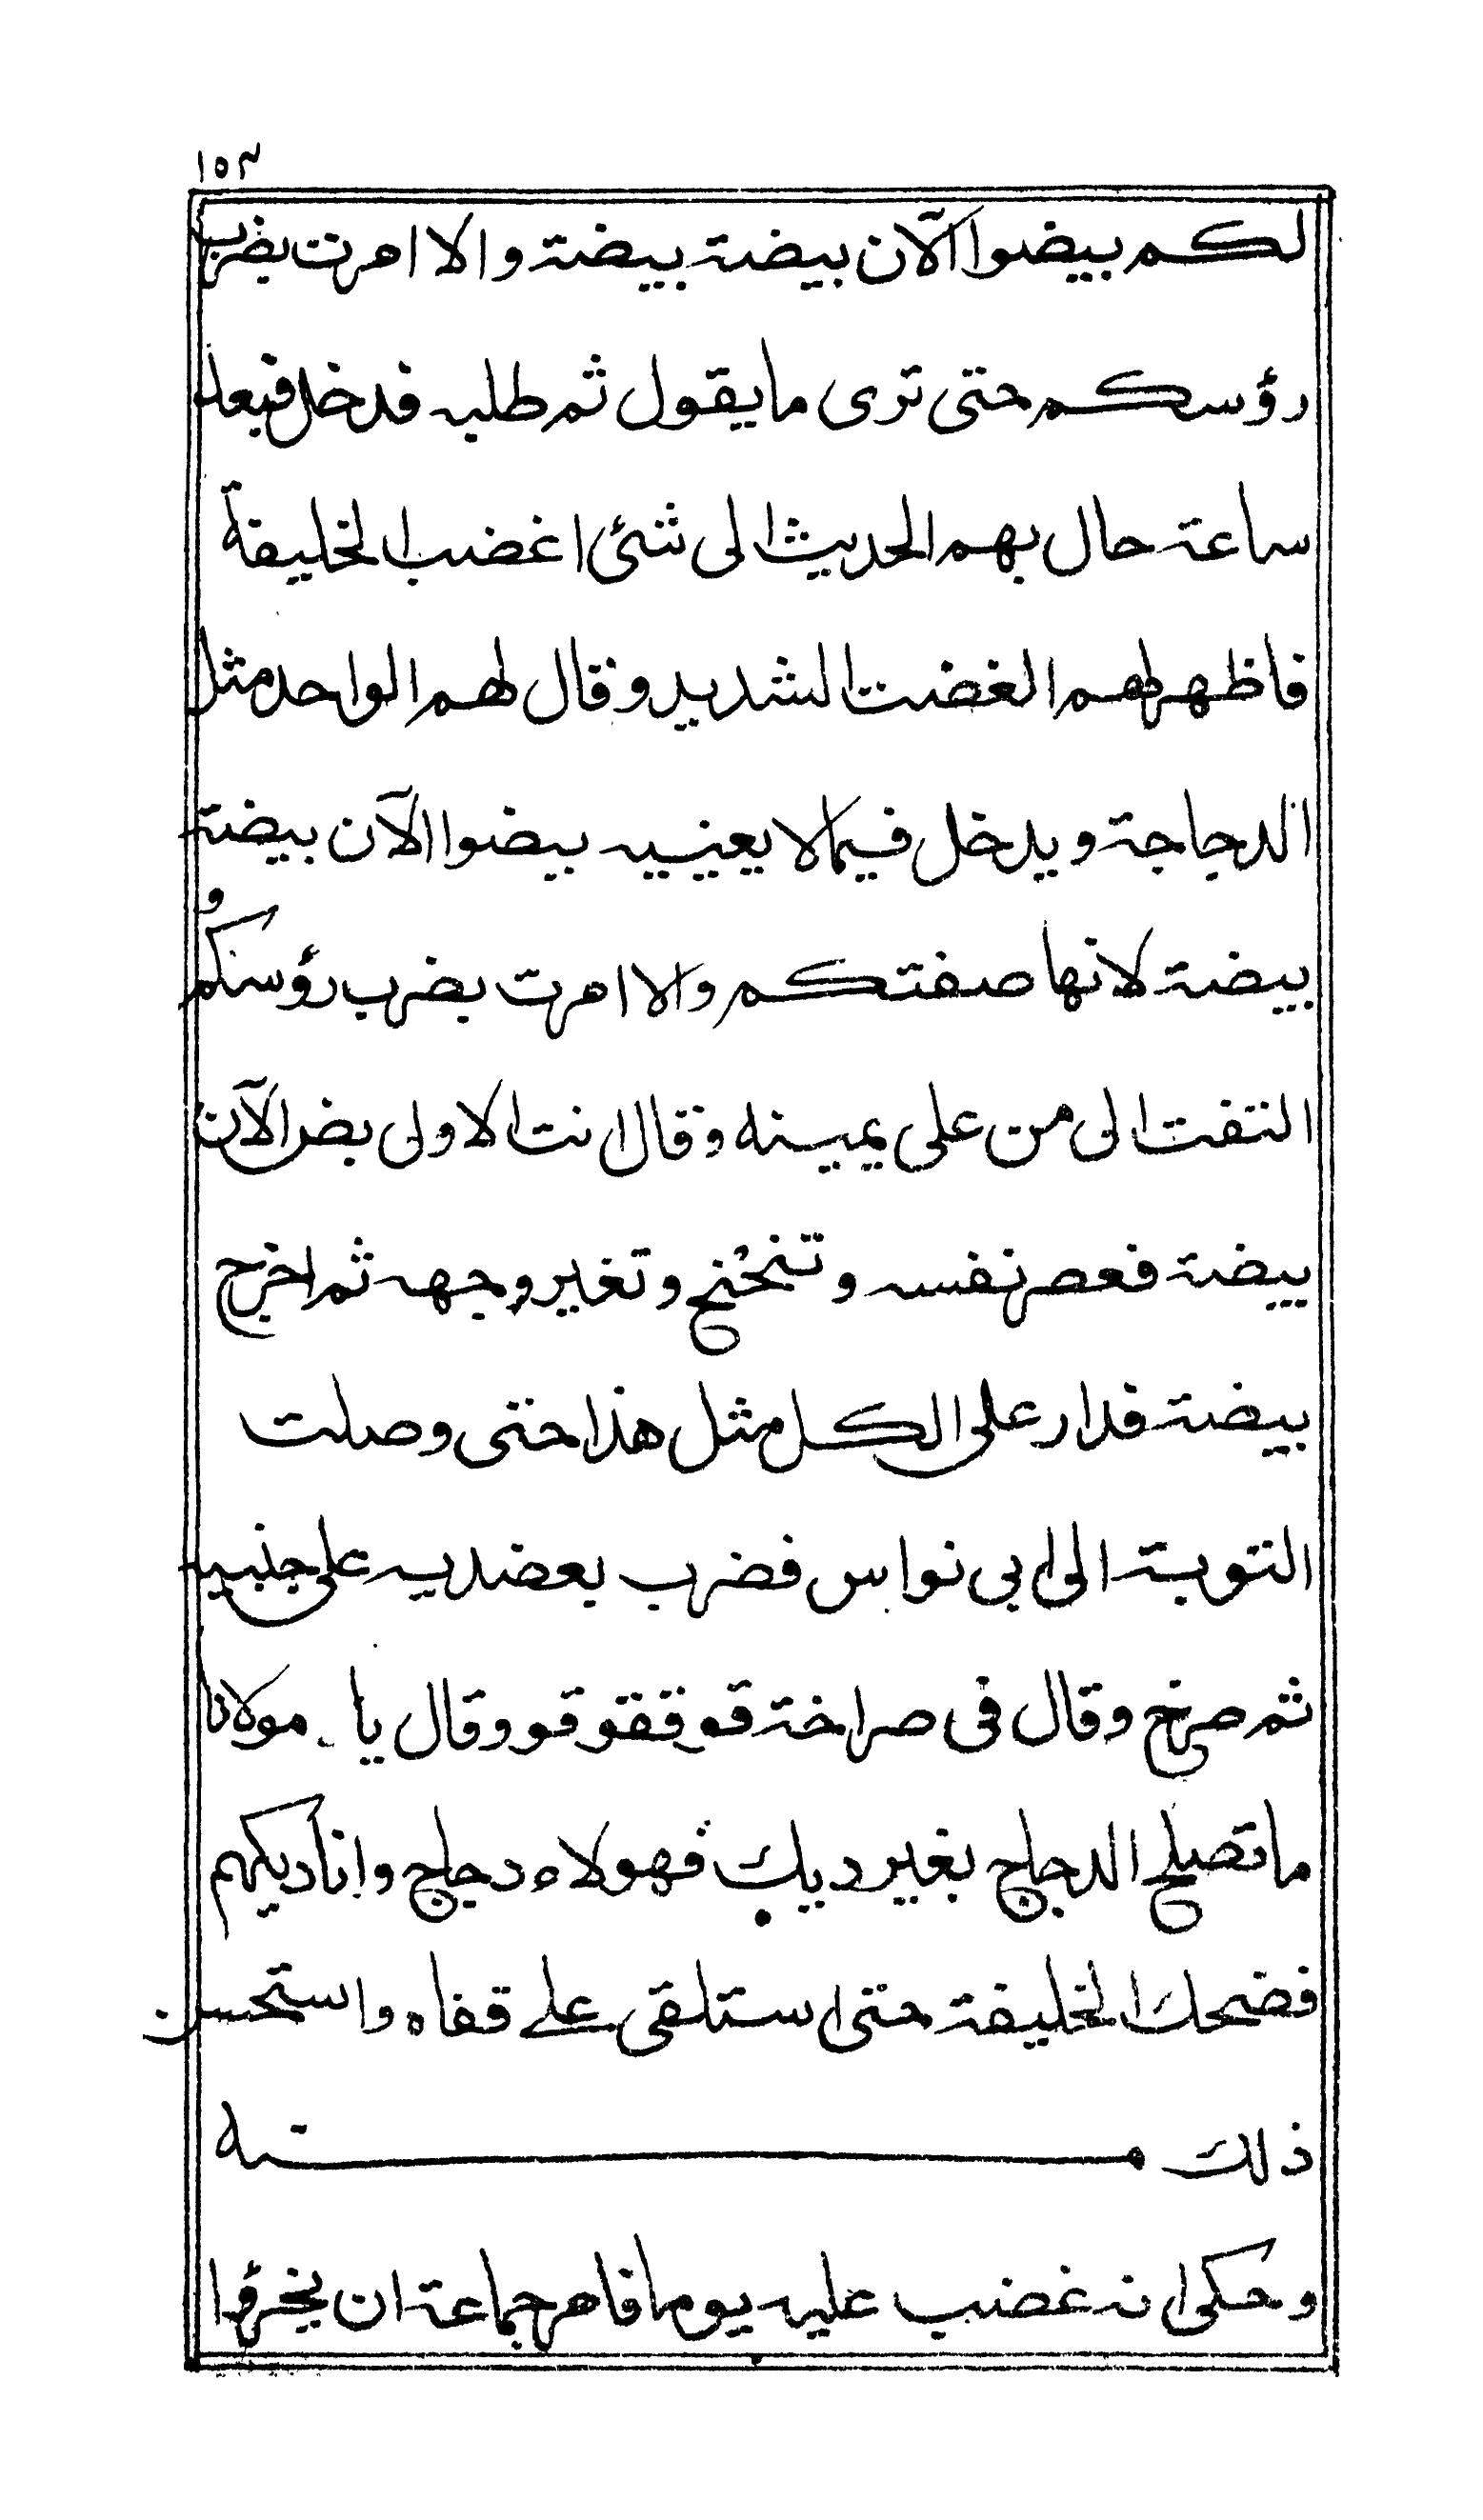 ١٥٣
لكم بيضوا الآن بيضة بيضة والا امرت بضرب
رؤسكم حتى نرى ما يقول ثم طلبه فدخل فبعد
ساعة حال بهم الحديث الى شئ اغضب الخليفة
فاظهر لهم الغضب الشديد وقال لهم الواحد مثل
الدجاجة ويدخل فيما لا يعنيه بيضوا الآن بيضة
بيضة لانها صفتكم والا امرت بضرب رؤسكم و
التفت الى من على يمينه وقال انت الاولى بض الآن
بيضة فعصر نفسه وتنحنح وتغير وجهه ثم اخرج
بيضة فدار على الكل مثل هذا حتى وصلت
النوبة الى ابى نواس فضرب بعضديه على جنبيه
ثم صرخ وقال فى صراخة قو ققو قو وقال يا مولانا
ما تصلح الدجاج بغير ديك فهولاء دجاج وانا ديكهم
فضحك الخليفة حتى استلقى على قفاه واستحسن
ذلك منه
وحكى انه غضب عليه يوما فامر جماعة ان يخرؤا